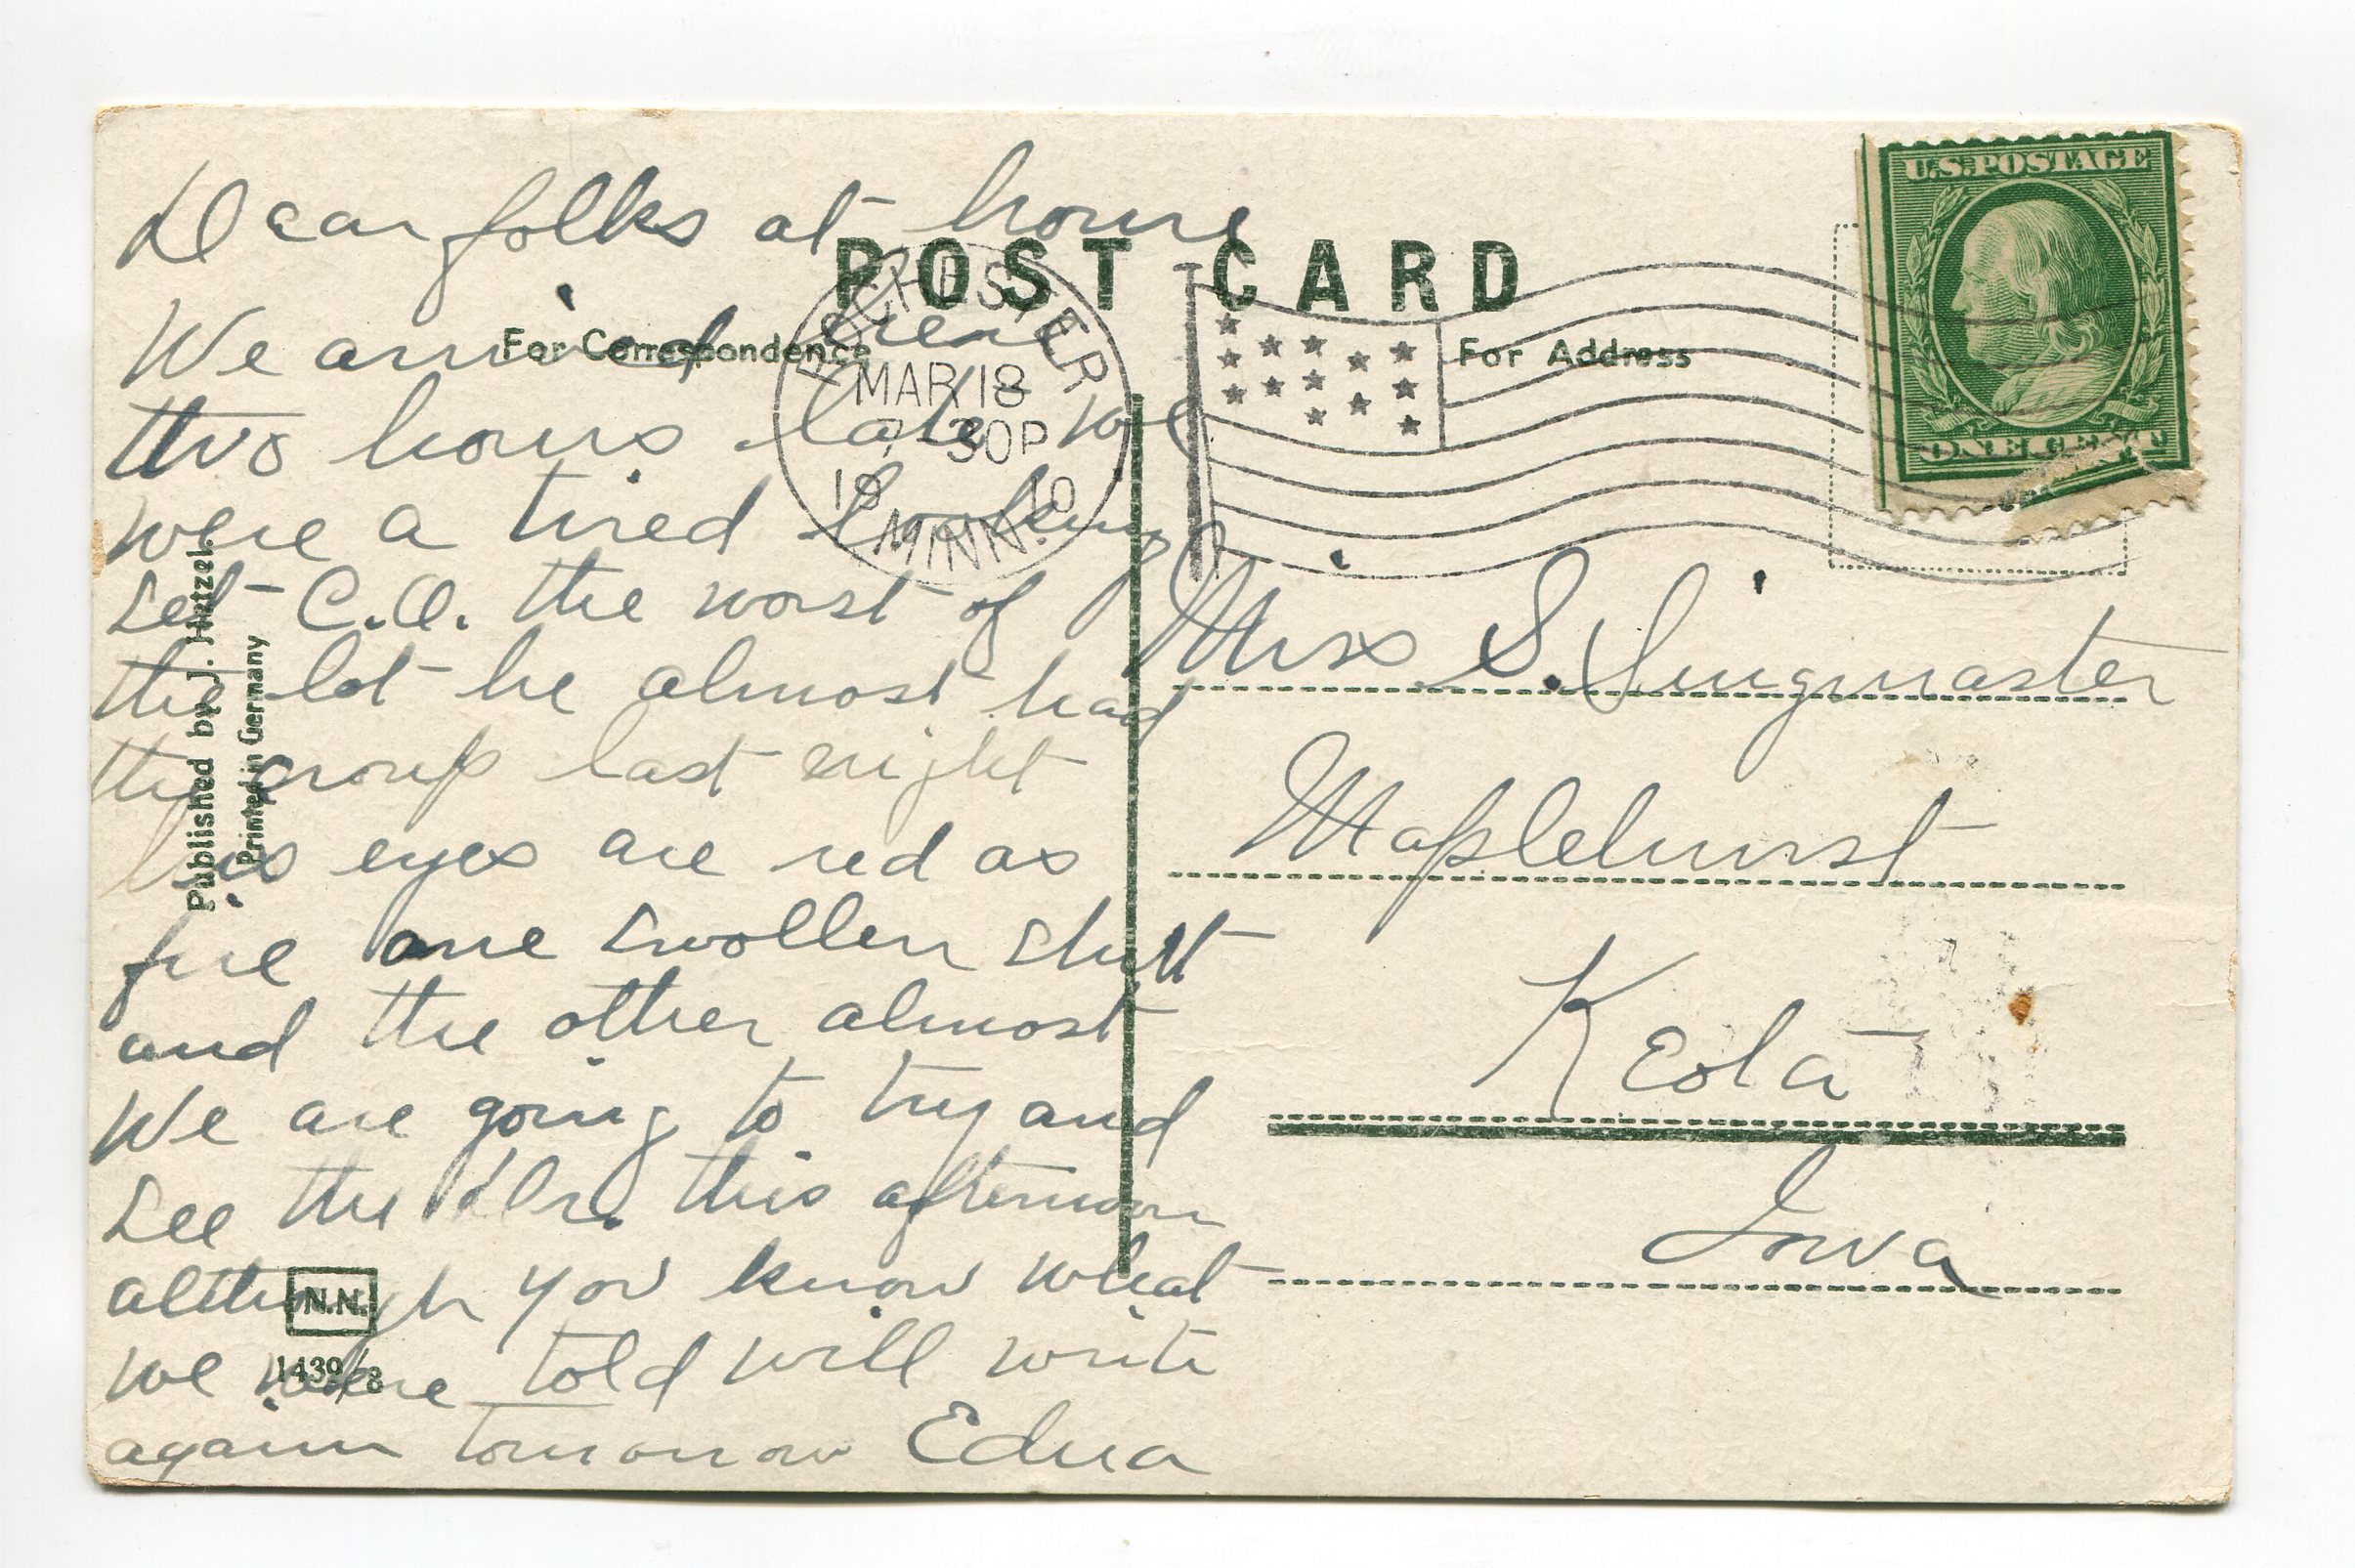 Dear folks at home
We arrived here
two hours late we
were a tired looking
set C.O. the worst of
the lot he almost had
the croup last night
his eyes are red as
fire one swollen shut
and the other almost
We are going to try and
see the Dr. this afternoon
although you know what
we where told will write
again tomorrow Edna
POST CARD
For Correspondence
For Address
ROCHESTER
MAR 18
7 30P
19 10
MINN.
U.S. POSTAGE
ONE CENT
Miss S. Singmaster
Maplehurst
Keota
Iowa
Published by J. Hetzel.
Printed in Germany
N.N.
1439/8